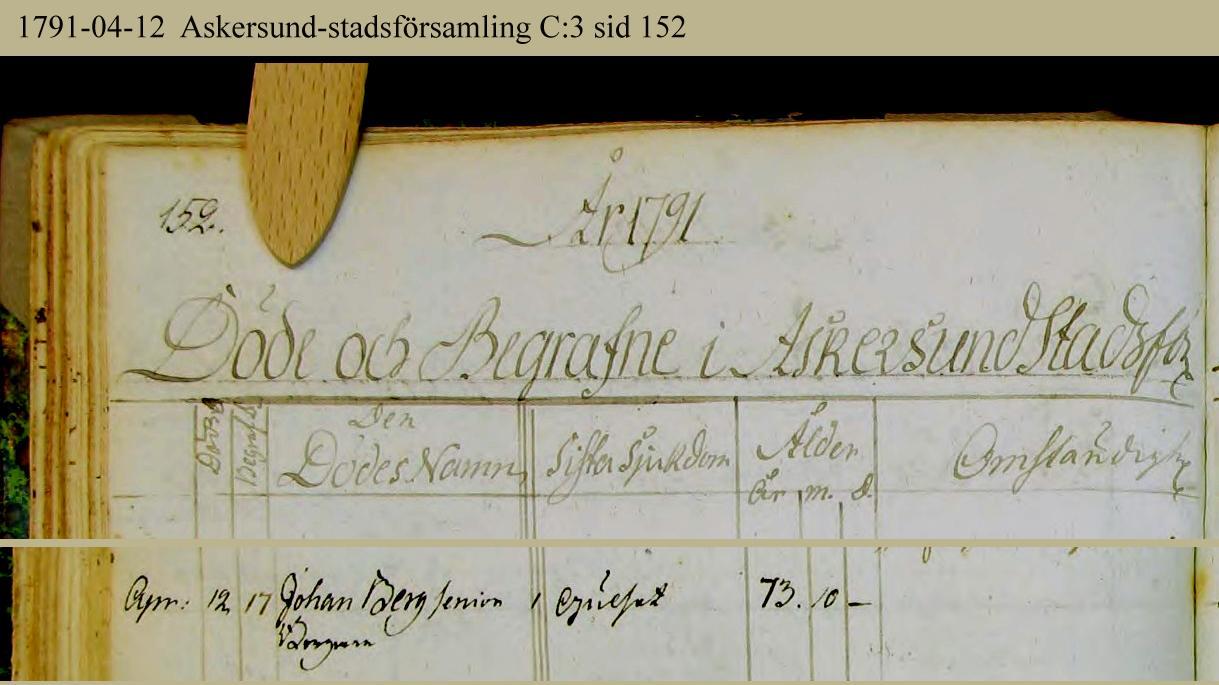 1791-04-12 Askersund-stadsförsamling C:3 sid 152
152.
År 1791
Döde och Begrafne i Askersund Stadsförs
Död Begraf. Den
Dödes Namn Sista Sjukdom Ålder Omständigh
År m. d.
Apr: 12 17 Johan Berg senior 73. 10 –
Borgare